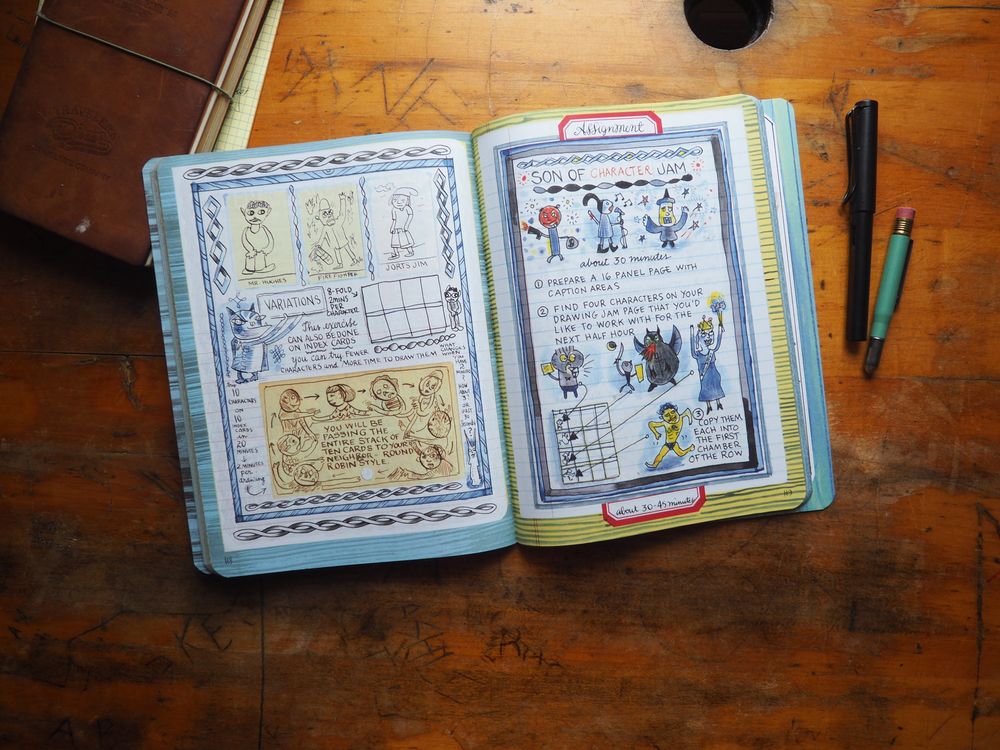 TRAVELER'S
MR. HUGHES
FIRE FIGHTER
JORTS JIM
VARIATIONS
8-FOLD
2 MINS
PER
CHARACTER
This exercise
CAN ALSO BE DONE
ON INDEX CARDS
you can try FEWER
CHARACTERS and MORE TIME TO DRAW THEM
WHAT
CHANGES
WHEN
10
CHARACTERS
ON
10
INDEX
CARDS
in
20
MINUTES
2 MINUTES
PER
drawing
YOU WILL BE
PASSING THE
ENTIRE STACK OF
TEN CARDS TO YOUR
NEIGHBOR - ROUND
ROBIN STYLE.
118
Assignment
SON OF CHARACTER JAM
about 30 minutes
1 PREPARE A 16 PANEL PAGE WITH
CAPTION AREAS
2 FIND FOUR CHARACTERS ON YOUR
DRAWING JAM PAGE THAT YOU'D
LIKE TO WORK WITH FOR THE
NEXT HALF HOUR
3 COPY THEM
EACH INTO
THE FIRST
CHAMBER
OF THE ROW
about 30-45 minutes
119